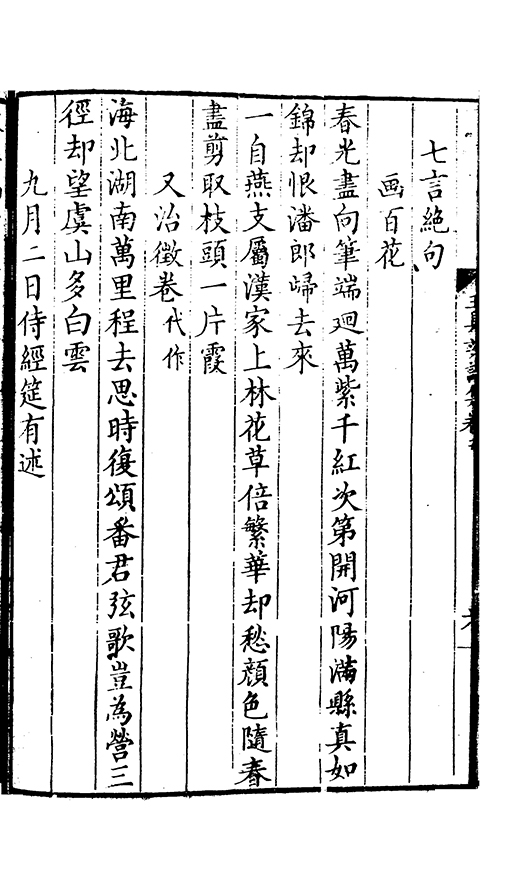 七言絶句
画百花
春光盡向筆端迴萬紫千紅次第開河陽滿縣真如
錦却恨潘郎歸去來
一自燕支屬漢家上林花草倍繁華却愁顔色隨春
盡剪取枝頭一片霞
又治徵卷代作
海北湖南萬里程去思時復頌番君弦歌豈為營三
徑却望虞山多白雲
九月二日侍經筵有述